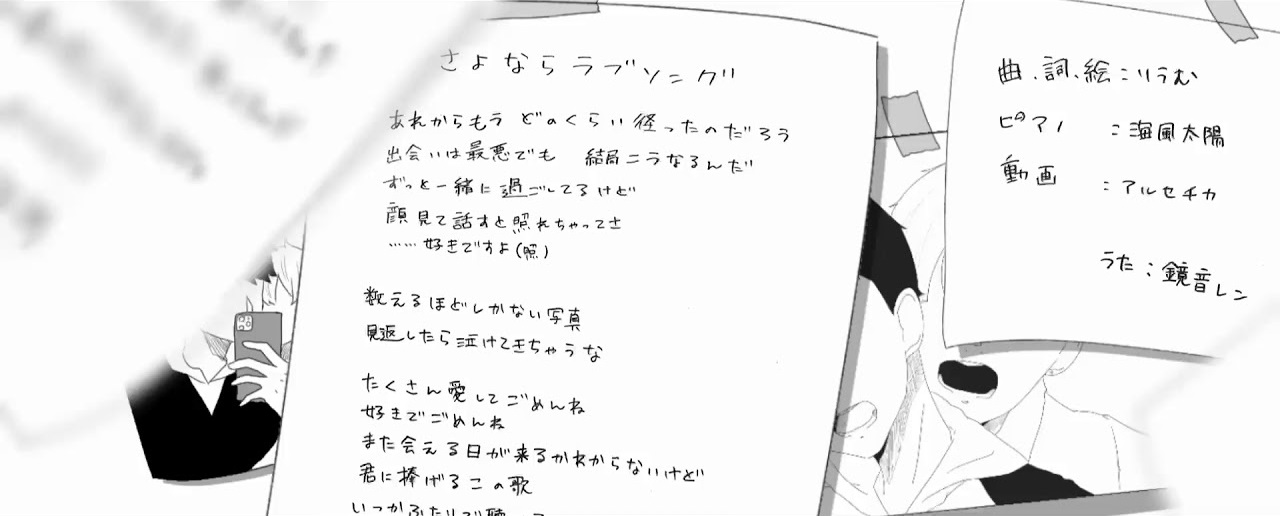 さよならラブソング
あれからもう どのくらい経ったのだろう
出会いは最悪でも 結局こうなるんだ
ずっと一緒に過ごしてるけど
顔見て話すと照れちゃってさ
……好きですよ(照)
数えるほどしかない写真
見返したら泣けてきちゃうな
たくさん愛してごめんね
好きでごめんね
また会える日が来るかわからないけど
君に捧げるこの歌
いつかふたりで聴
曲、詞、絵:りうむ
ピアノ :海風太陽
動画 :アルセチカ
うた:鏡音レン